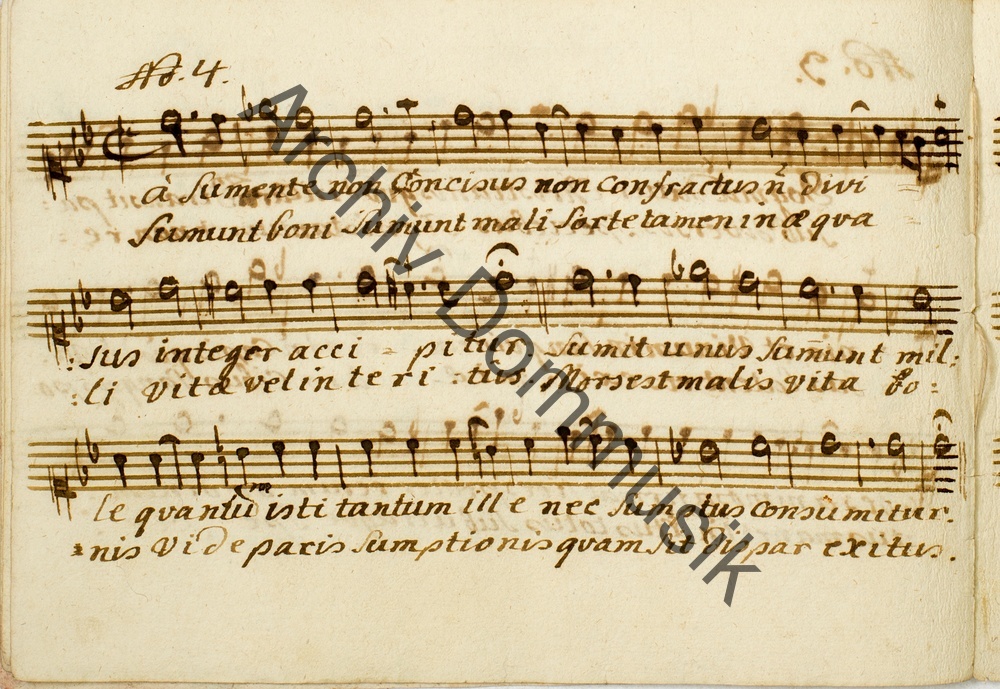 No. 4.
à sumente non Concisus non confractus n̄ divi
Sumunt boni sumunt mali sorte tamen in æ qua
: sus integer acci = pitur. Sumit unus sum̄unt mil:
: li vitæ vel in te ri : tus. Mors est malis vita bo =
le quantū isti tantum ille nec sumptus consumitur.
= nis Vide paris sumptionis quam sit dispar exitus.
Archiv Dommusik